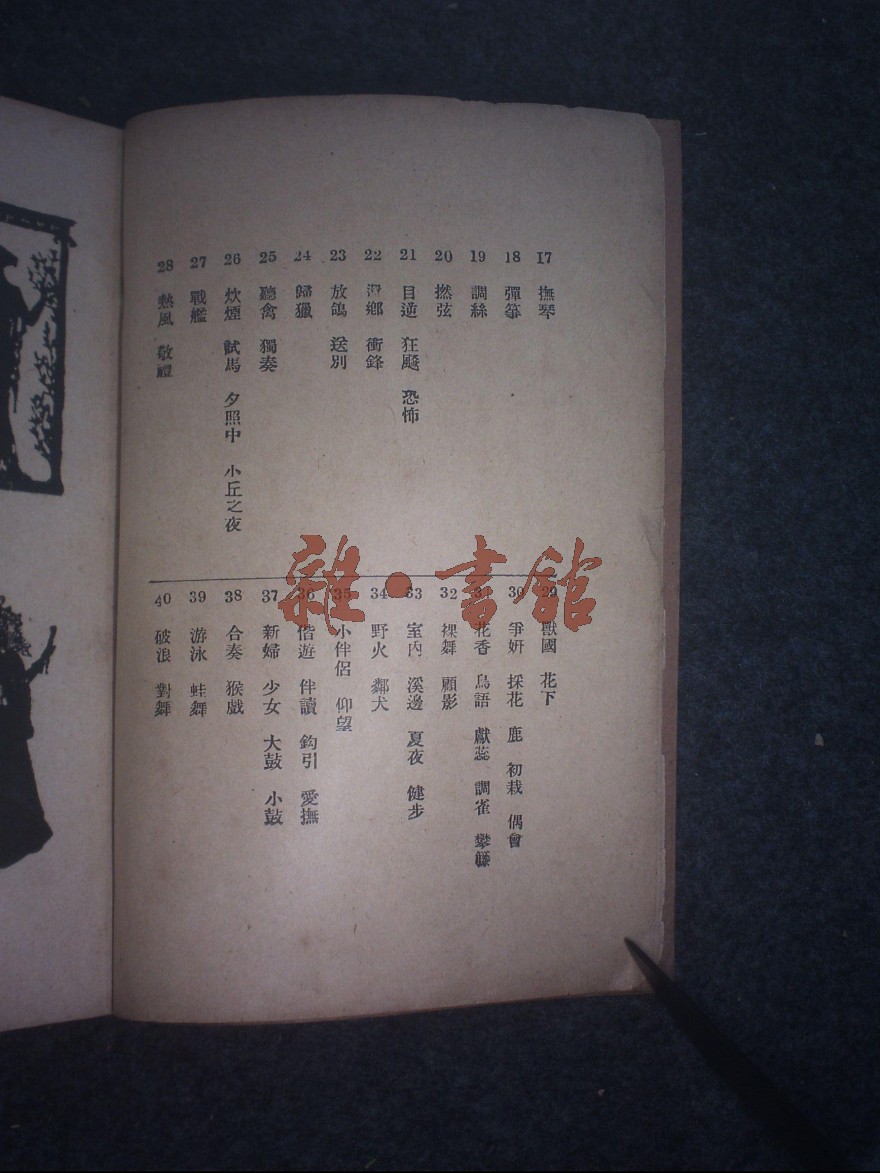 17 撫琴
18 彈箏
19 調絲
20 撚弦
21 目逆 狂飈 恐怖
22 鄉 衝鋒
23 放鴿 送別
24 歸獵
25 聽禽 獨奏
26 炊煙 試馬 夕照中 小丘之夜
27 戰艦
28 熱風 敬禮
29 獸國 花下
30 爭妍 採花 鹿 初栽 偶會
31 花香 鳥語 獻蕊 調雀 攀藤
32 裸舞 顧影
33 室內 溪邊 夏夜 健步
34 野火 鄰犬
35 小伴侶 仰望
36 偕遊 伴讀 鈎引 愛撫
37 新婦 少女 大鼓 小鼓
38 合奏 猴戲
39 游泳 蛙舞
40 破浪 對舞
雜·書館